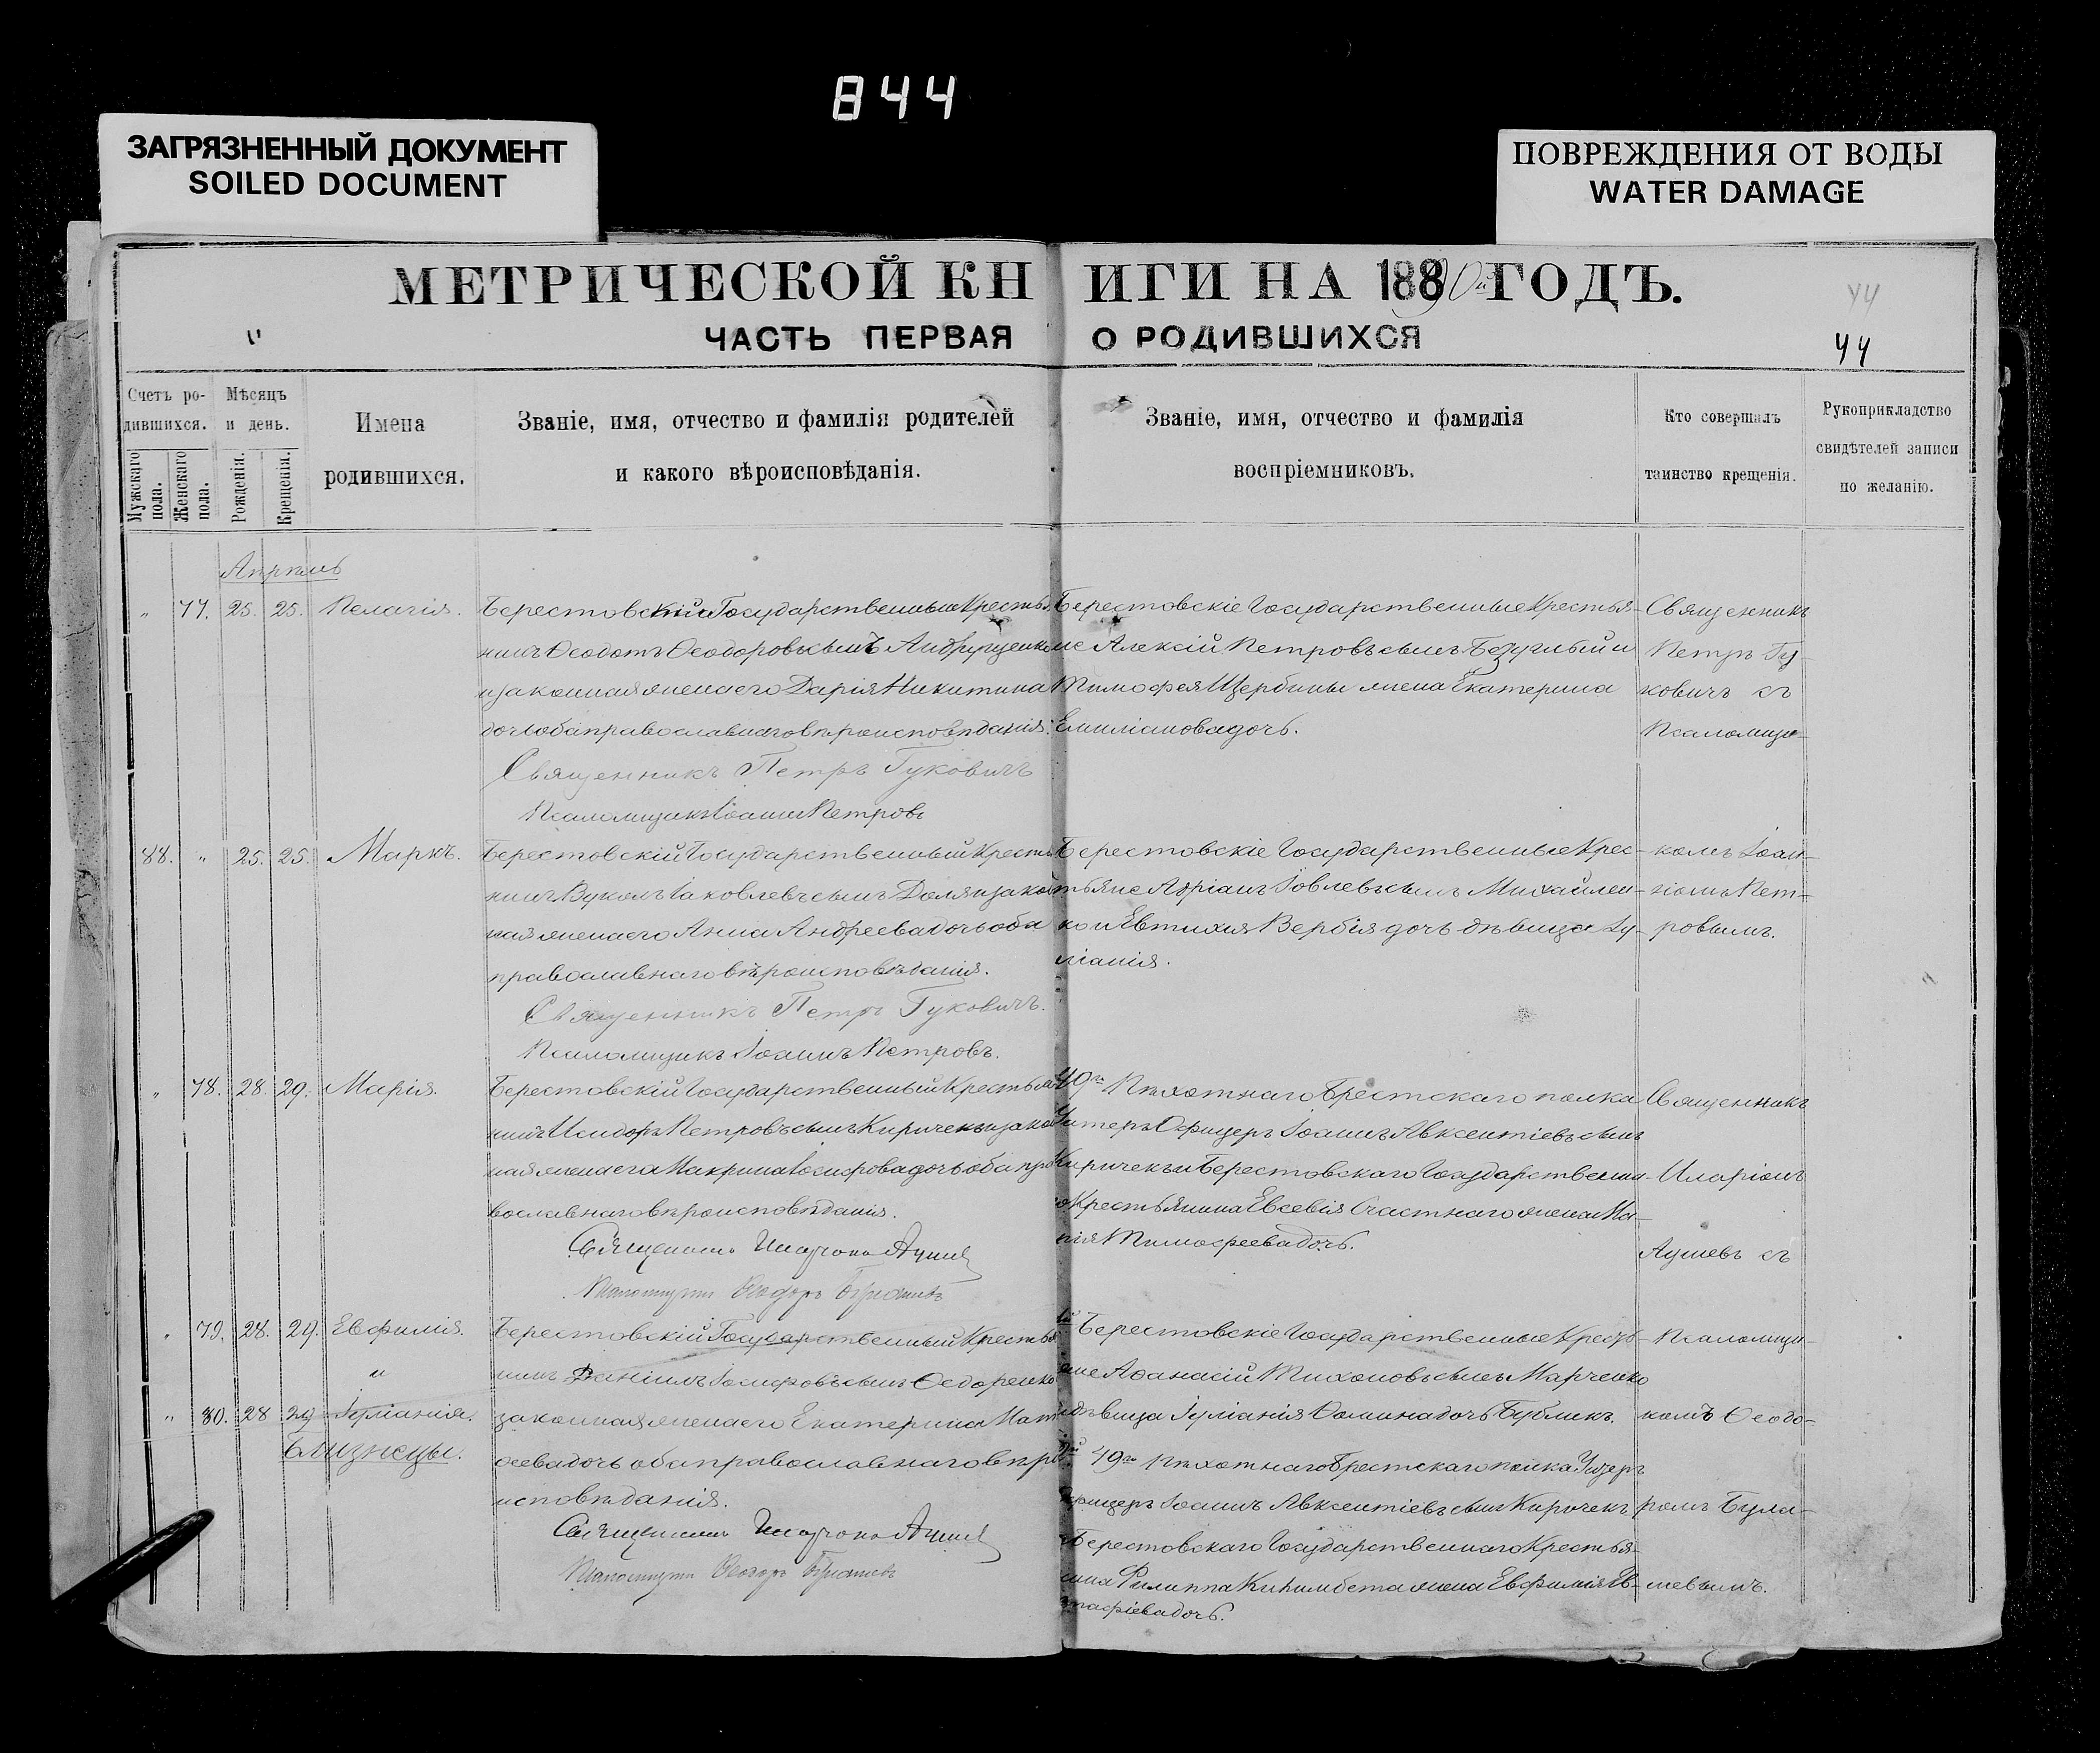 844
ЗАГРЯЗНЕННЫЙ ДОКУМЕНТ
SOILED DOCUMENT
ПОВРЕЖДЕНИЯ ОТ ВОДЫ
WATER DAMAGE
МЕТРИЧЕСКОЙ КНИГИ НА 1890 ГОДЪ.
44
ЧАСТЬ ПЕРВАЯ О РОДИВШИХСЯ
44
Счетъ ро-
дившихся.
Мужскаго пола.
Женскаго пола.
Мѣсяцъ
и день.
Рожденія.
Крещенія.
Имена
родившихся.
Званіе, имя, отчество и фамилія родителей
и какого вѣроисповѣданія.
Званіе, имя, отчество и фамилія
воспріемниковъ.
Кто совершалъ
таинство крещенія.
Рукоприкладство
свидѣтелей записи
по желанію.
Апрѣль
" 77. 25. 25. Пелагія.
Берестовскій Государственный Крестья
нинъ Ѳеодотъ Ѳеодоровъ сынъ Андрущенко
и законная жена его Дарія Никитина
дочь оба православнаго вѣроисповѣданія.
Священникъ Петръ Гуковичъ
Псаломщикъ Іоаннъ Петровъ
Берестовскіе Государственные Крестья-
не Алексій Петровъ сынъ Безуглый и
Тимофея Щербины жена Екатерина
Емиліанова дочь.
Священникъ
Петръ Гу-
ковичъ съ
Псаломщи-
88. " 25. 25. Маркъ.
Берестовскій Государственный Крестья
нинъ Вуколъ Іаковлевъ сынъ Доля и закон
ная жена его Анна Андреева дочь оба
православнаго вѣроисповѣданія.
Священникъ Петръ Гуковичъ.
Псаломщикъ Іоаннъ Петровъ.
Берестовскіе Государственные Крес-
тьяне Адріанъ Іовлевъ сынъ Михайлен-
ко и Евтихія Вербія дочь дѣвица Іу-
ліанія.
комъ Іоан-
номъ Пет-
ровымъ.
" 78. 28. 29. Марія.
Берестовскій Государственный Крестья
нинъ Исидоръ Петровъ сынъ Киричекъ и закон
ная жена его Макрина Іосифова дочь оба пра
вославнаго вѣроисповѣданія.
Священникъ Иларіонъ Ащиевъ
Псаломщикъ Ѳеодоръ
49го Пѣхотнаго Брестскаго полка
Унтеръ Офицеръ Іоаннъ Авксентіевъ сынъ
Киричекъ и Берестовскаго Государственна-
го Крестьянина Евсевія Счастнаго жена Ма-
рія Тимофеева дочь.
Священникъ
Иларіонъ
съ
" 79. 28. 29. Евфимія.
"
" 80. 28 29 Іуліанія.
Близнецы.
Берестовскій Государственный Крестья
нинъ Даніилъ Іосифовъ сынъ Ѳедоренко
законная жена его Екатерина Мат
ѳеева дочь оба православнаго вѣро
исповѣданія.
Священникъ Иларіонъ
Псаломщикъ Ѳеодоръ
Берестовскіе Государственные Кресть-
яне Аѳанасій Тихоновъ сынъ Марченко
и дѣвица Іуліанія Ѳомина дочь Бубликъ.
49го Пѣхотнаго Брестскаго полка Унтеръ
Офицеръ Іоаннъ Авксентіевъ сынъ Киричекъ
Берестовскаго Государственнаго Крестья-
нина Филиппа жена Евфимія Ев-
стафіева дочь.
Псаломщи-
комъ Ѳеодо-
ромъ